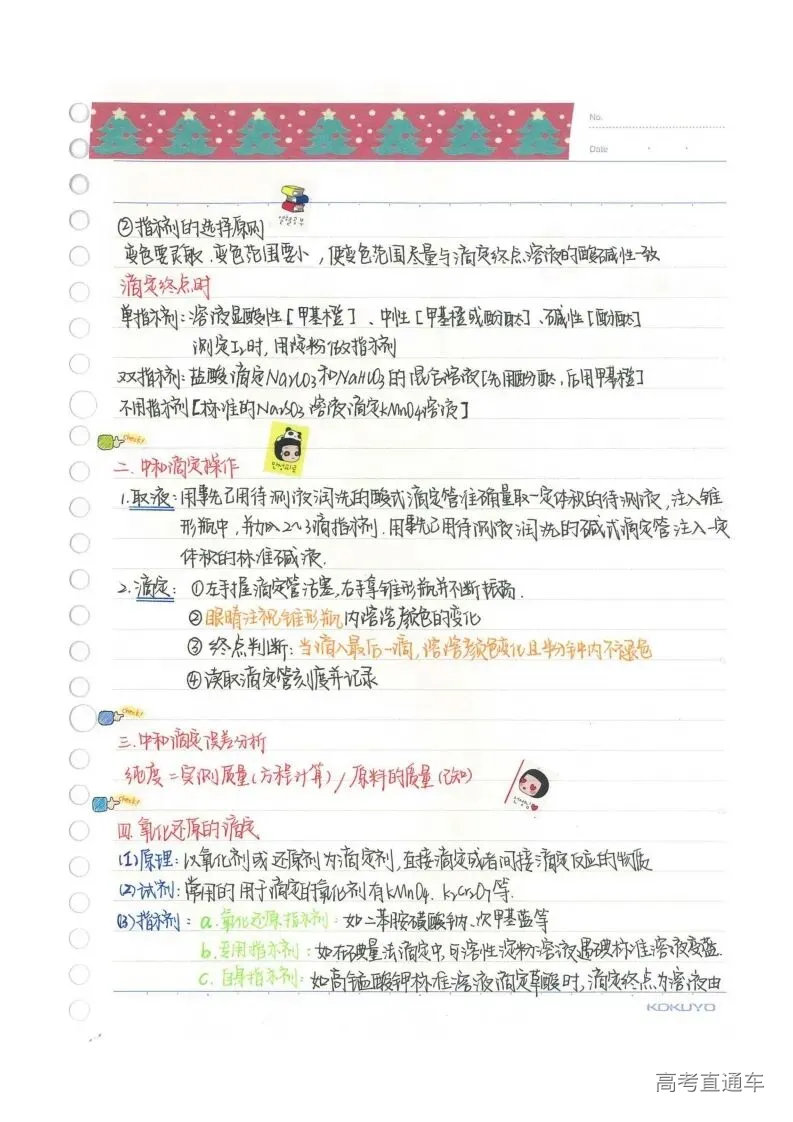 No.
Date
②指示剂的选择原则
变色要灵敏.变色范围要小,使变色范围尽量与滴定终点溶液的酸碱性一致
滴定终点时
单指示剂:溶液显酸性[甲基橙]、中性[甲基橙或酚酞]、碱性[酚酞]
测定I₂时,用淀粉做指示剂
双指示剂:盐酸滴定Na₂CO₃和NaHCO₃的混合溶液[先用酚酞,后用甲基橙]
不用指示剂[标准的Na₂SO₃溶液滴定KMnO₄溶液]
check!
二.中和滴定操作
1.取液:用事先已用待测液润洗的酸式滴定管准确量取一定体积的待测液,注入锥
形瓶中,并加入2~3滴指示剂.用事先已用待测液润洗的碱式滴定管注入一定
体积的标准碱液.
2.滴定:①左手握滴定管活塞,右手拿锥形瓶并不断振荡.
②眼睛注视锥形瓶内溶液颜色的变化
③终点判断:当滴入最后一滴,溶液颜色变化且半分钟内不褪色
④读取滴定管刻度并记录
check!
三.中和滴定误差分析
纯度=实测质量(方程计算)/原料的质量(已知)
check!
四.氧化还原的滴定
(1)原理:以氧化剂或还原剂为滴定剂,直接滴定或者间接滴定反应的物质
(2)试剂:常用的用于滴定的氧化剂有KMnO₄.K₂Cr₂O₇等.
(3)指示剂:a.氧化还原指示剂:如二苯胺磺酸钠、次甲基蓝等
b.专用指示剂:如在碘量法滴定中,可溶性淀粉溶液遇碘标准溶液变蓝.
c.自身指示剂:如高锰酸钾标准溶液滴定草酸时,滴定终点为溶液由
KOKUYO
高考直通车